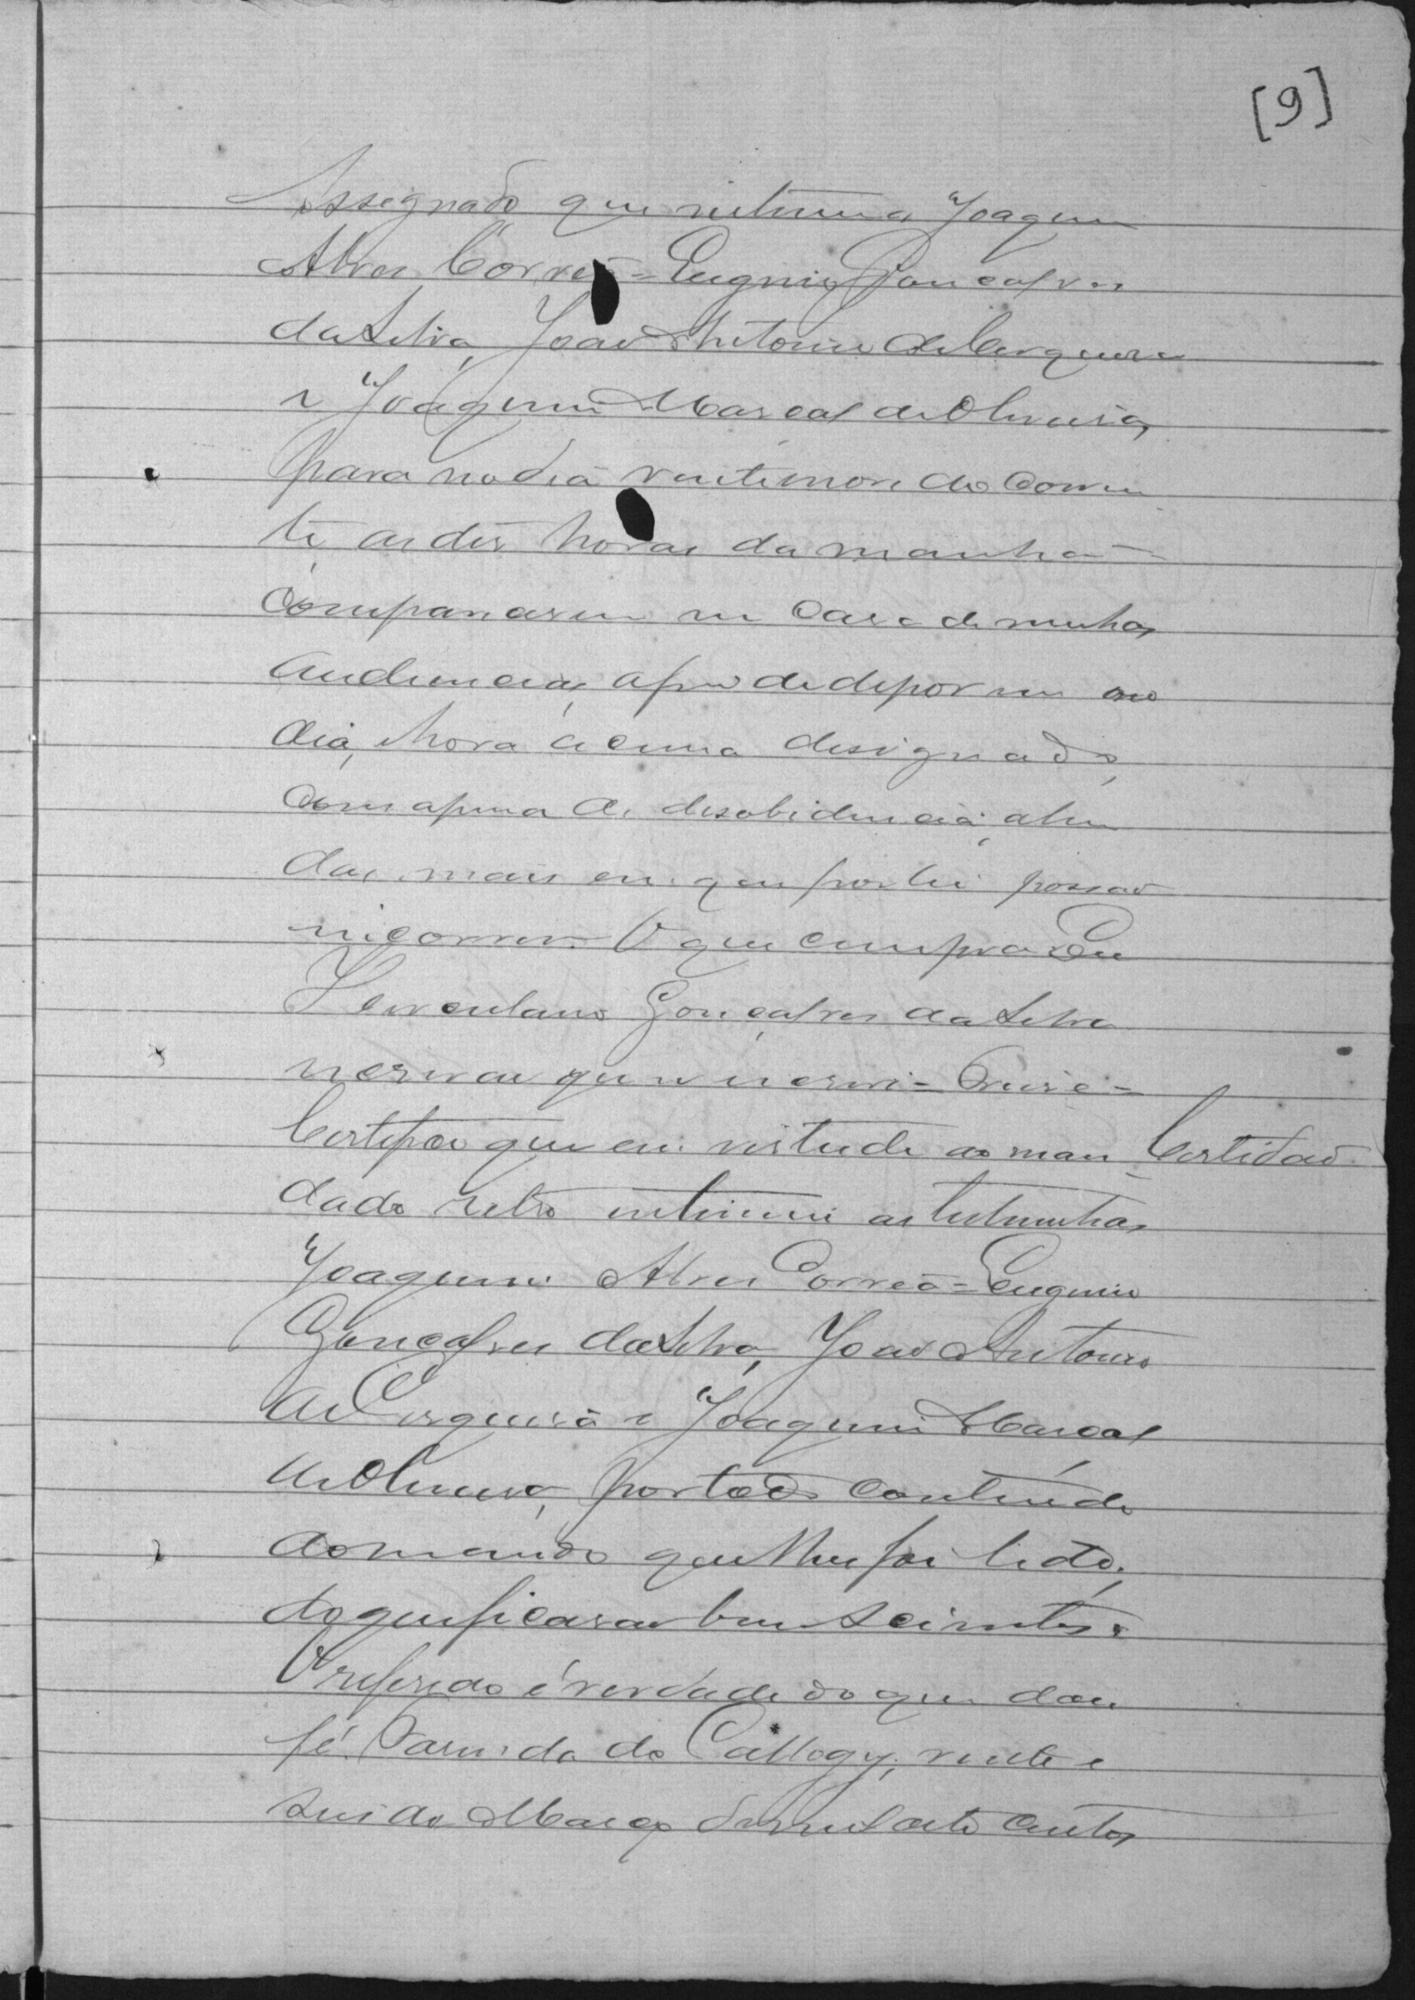 [9]
Assignado que intime a Joaquim
Alves Corrêa = Eugenio Gonçalves
da Silva, João Antonio de Cerqueira
e Joaquim Marçal de Oliveira,
para no dia vinte nove do corren
te as dés horas da manhã
comparecerem em casa de minhas
audiencias, afim de deporem no
dia, hora acima designado,
com a pena de desobidiencia, alem
das mais em que por lei possão
incorrer. O que cumpra. Eu
Herculano Gonçalves da Silva
escrivão que o escrevi =
Certifico que em virtude do man
Certidão
dado retro intimei as testemunhas
Joaquim Alves Corrêa = Eugenio
Gonçalves da Silva, João Antonio
de Cerqueira e Joaquim Marçal
de Oliveira, por todo contheúdo
do mando que lhes foi lido,
do que ficarão bem scientes.
O referido é verdade do que dou
fé. do vinte e
seis de Março de mil oito centos